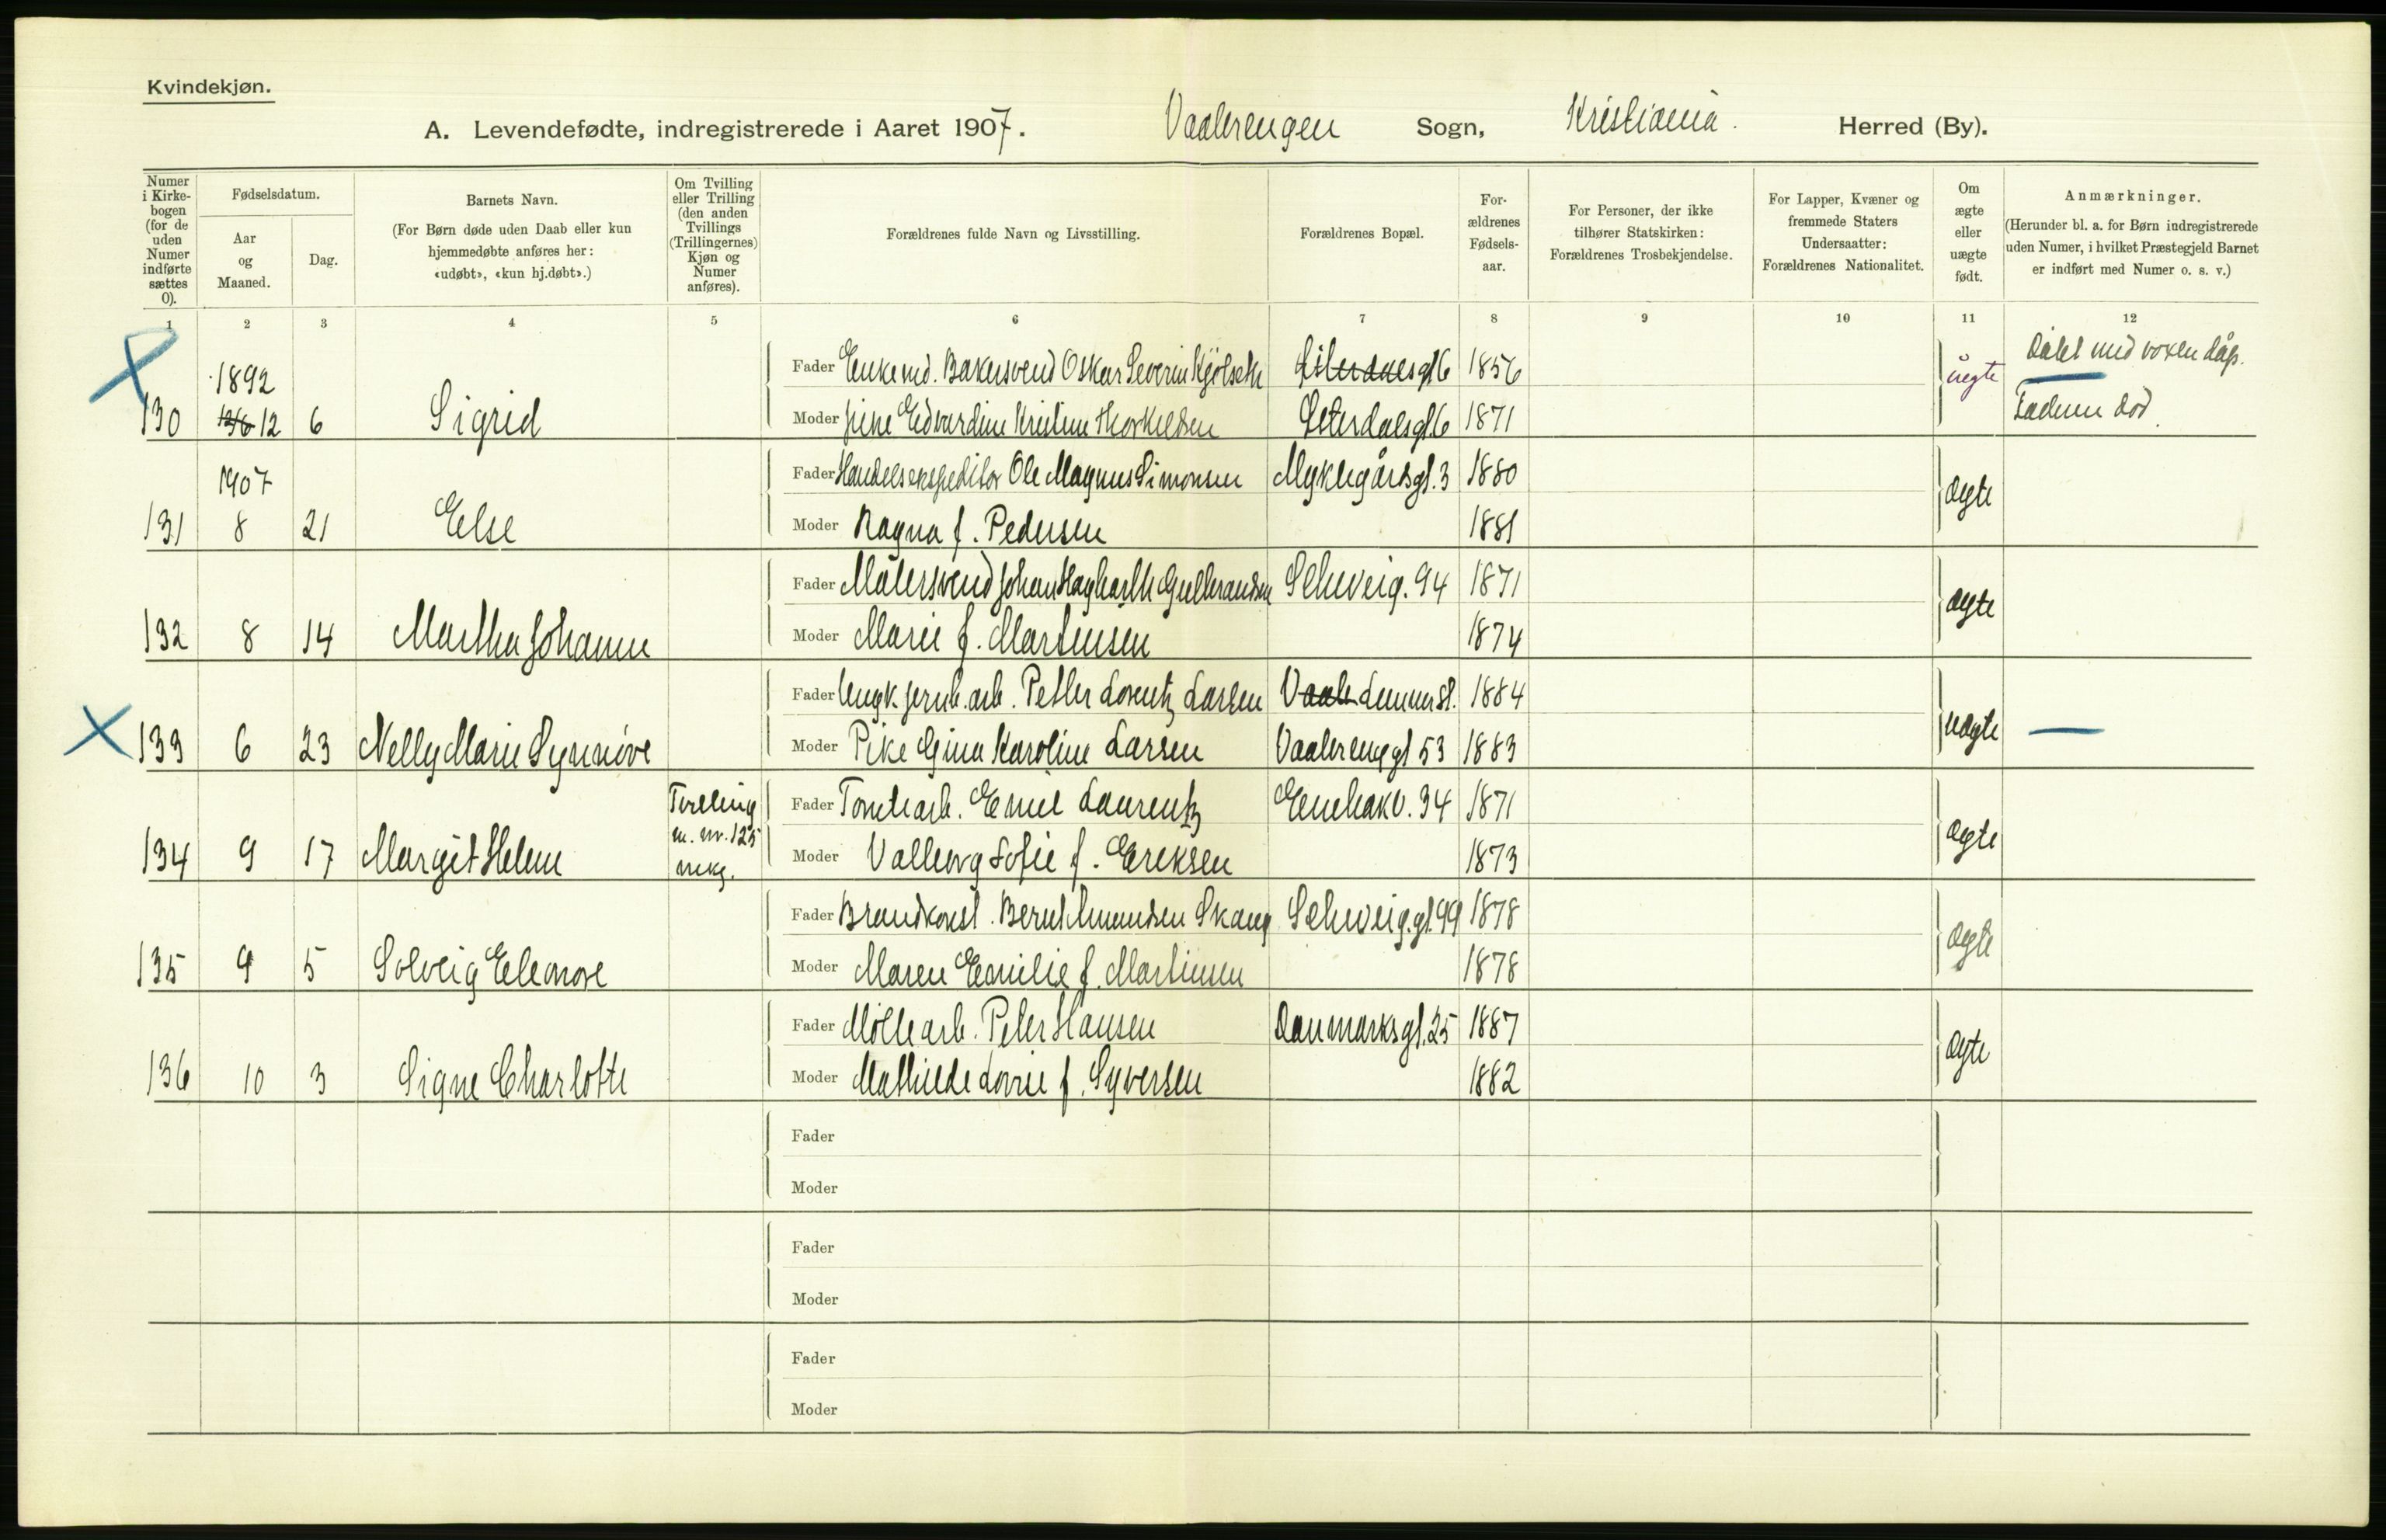 Kvindekjøn.
A. Levendefødte, indregistrerede i Aaret 1907. Vaalerengen Sogn, Kristiania. Herred (By).
Numer i Kirkebogen (for de uden Numer indførte sættes 0).
Fødselsdatum.
Aar og Maaned.
Dag.
Barnets Navn.
(For Børn døde uden Daab eller kun hjemmedøbte anføres her: «udøbt», «kun hj.døbt».)
Om Tvilling eller Trilling (den anden Tvillings (Trillingernes) Kjøn og Numer anføres).
Forældrenes fulde Navn og Livsstilling.
Forældrenes Bopæl.
Forældrenes Fødselsaar.
For Personer, der ikke tilhører Statskirken: Forældrenes Trosbekjendelse.
For Lapper, Kvæner og fremmede Staters Undersaatter: Forældrenes Nationalitet.
Om ægte eller uægte født.
Anmærkninger.
(Herunder bl. a. for Børn indregistrerede uden Numer, i hvilket Præstegjeld Barnet er indført med Numer o. s. v.)
1 2 3 4 5 6 7 8 9 10 11 12
Fader Enkemd. Bakersvend Oskar Severin 1856
1892
130 12 6 Sigrid
Moder Pike Edvardine Kristine Thorkildsen Østerdalsgt 6 1871
uegte
Døbt med voxen dåp.
Faderen död.
1907
Fader Handelsekspeditør Ole Magnus Simonsen Myklegårdsgt. 3 1880
131 8 21 Else
Moder Ragna f. Pedersen 1881
ægte
Fader Malersvend Johan Hagbarth Gulbrandsen Schweig. 94 1871
132 8 14 Martha Johanne
Moder Marie f. Martinsen 1874
ægte
Fader Ungk. jernb. arb. Petter Lorentz Larsen 1884
133 6 23 Nelly Marie Synnöve
Moder Pike Gina Karoline Larsen Vaalerenggt 53 1883
uægte —
Tvilling
m. nr. 125
mkj.
Fader Tomtearb. Emil Laurentz Enebakv. 34 1871
134 9 17 Margit Helene
Moder Valborg Sofie f. Eriksen 1873
ægte
Fader Brandkonst. Bernt Amundsen Skaug Schweig.gt. 99 1878
135 9 5 Solveig Eleonore
Moder Maren Emilie f. Martinsen 1878
ægte
Fader Möllearb. Peter Hansen Danmarksgt. 25 1887
136 10 3 Signe Charlotte
Moder Mathilde Lovise f. Syversen 1882
ægte
Fader
Moder
Fader
Moder
Fader
Moder